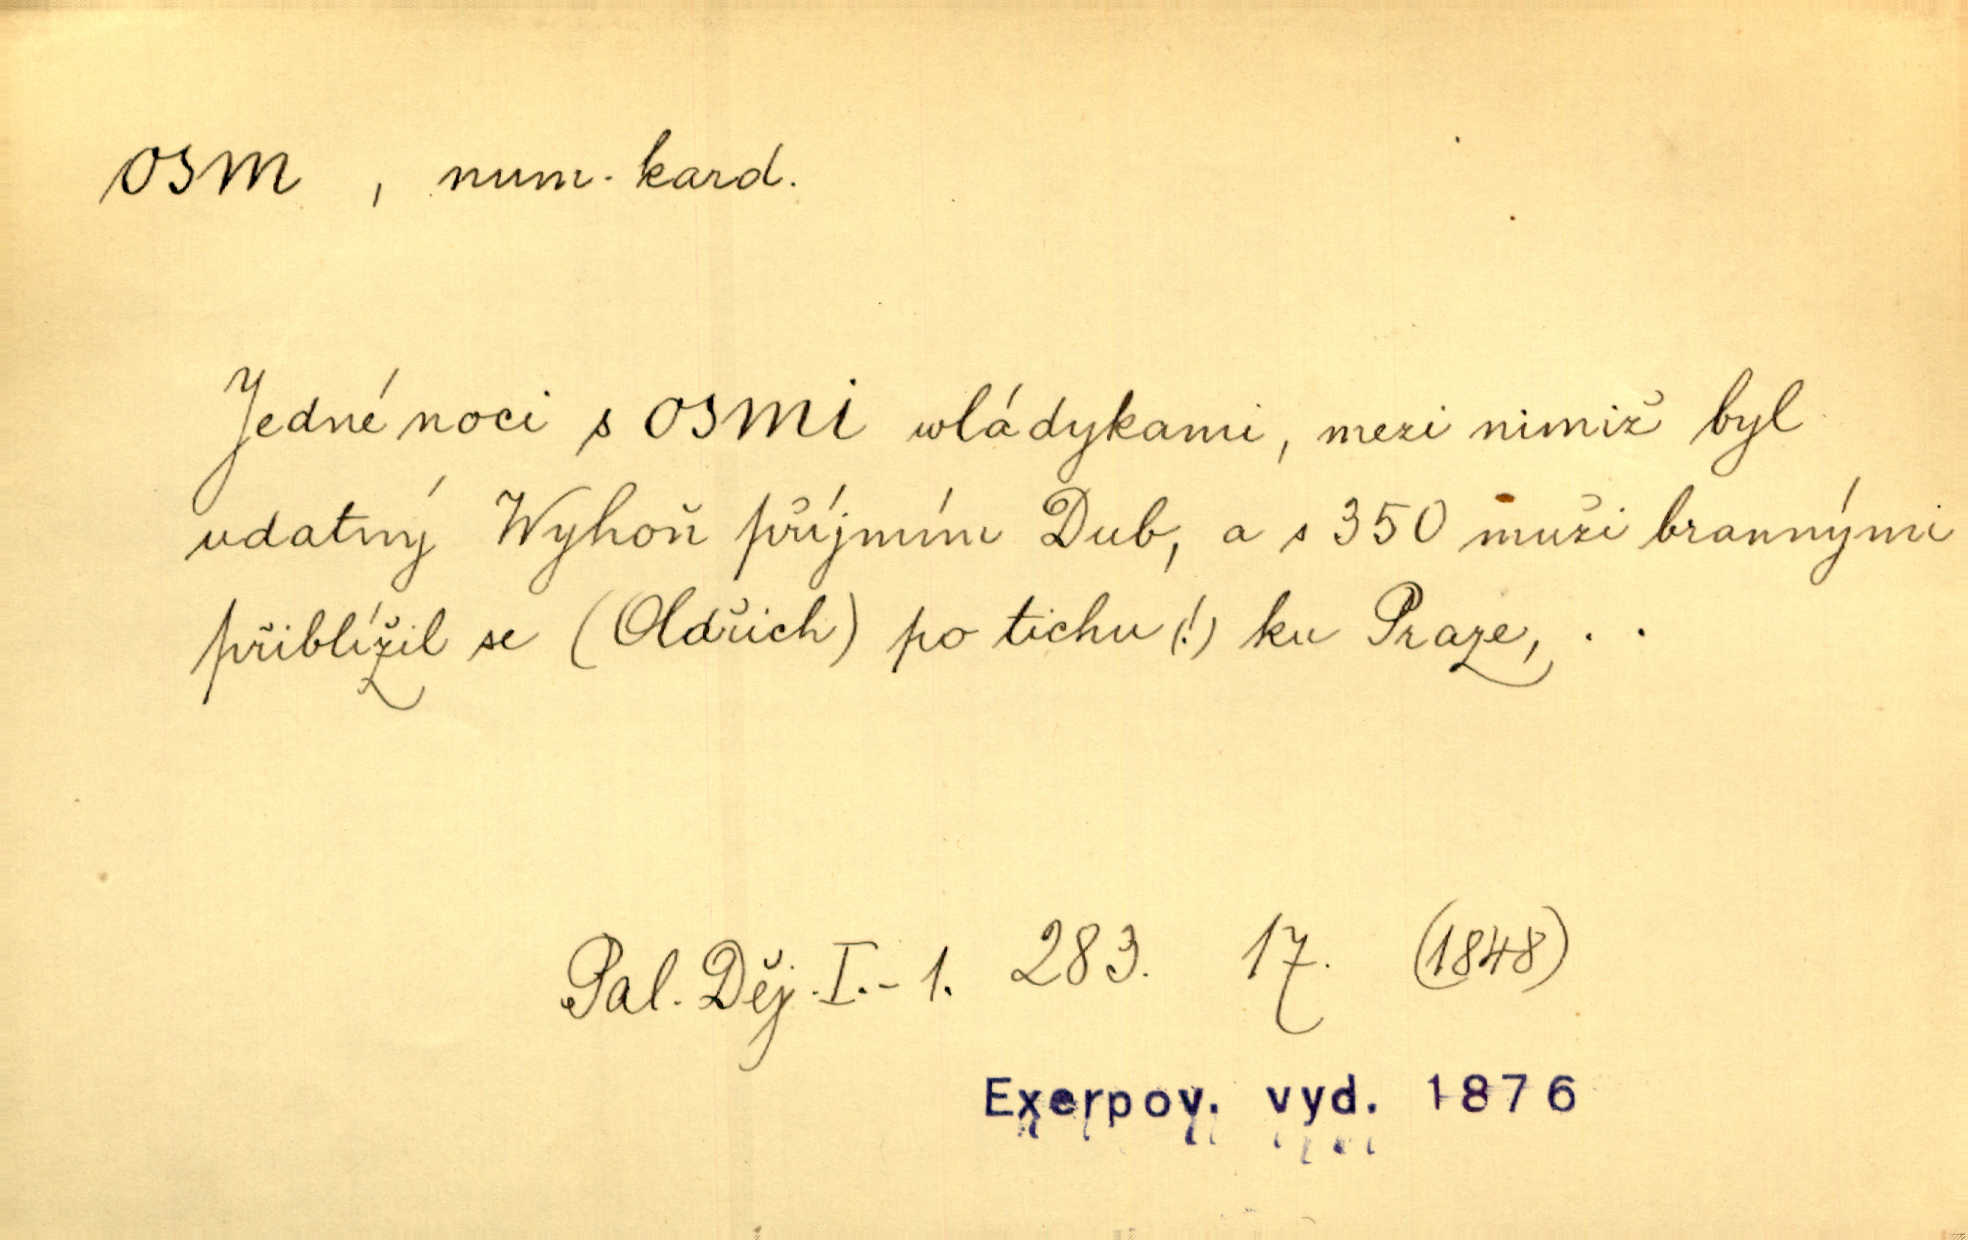 osm , num. kard.
Jedné noci s osmi wládykami, mezi nimiž byl
udatný Wyhoň příjmím Dub, a s 350 muži brannými
přiblížil se (Oldřich) po tichu (!) ku Praze, . .
Pal. Děj. I.-1. 283. 17. (1848)
Exerpov. vyd. 1876